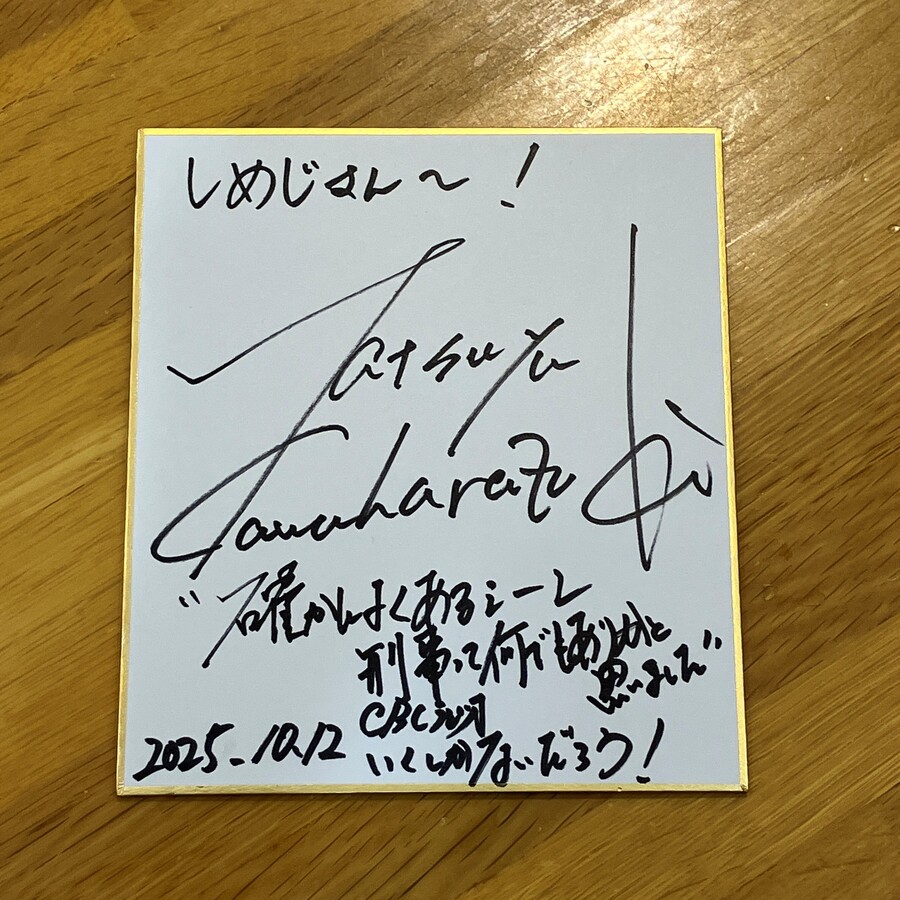 しめじさん〜！
Tatsuya
Kawaharazuka
"確かによくあるシーン
刑事って何でもありめと
思いました"
CBCラジオ
2025.10.12 いくしかないだろう！